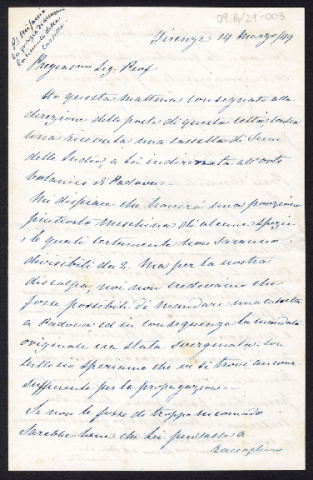 09.B/29-003
Firenze 14 Marzo/89
Pregiatmo Sig. Prof.
Ho questa mattina consegnato alla
direzione della posta di questa città contro
una ricevuta una cassetta di semi
delle Indie, a Lei indirizzata all'orto
botanico di Padova.-
Mi dispiace che troverà una porzione
piuttosto meschina di alcune specie,
le quali certamente non saranno
divisibili da 2. Ma per la nostra
discolpa, noi non credevamo che
fosse possibile di mandare una cassetta
a Padova, ed in conseguenza la mandata
originale era stata sverginata. con
tutto ciò speriamo che vi si trovi ancora
sufficiente per la propagazione.-
Se non le fosse di troppo incomodo
sarebbe bene che Lei pensasse a
raccogliere